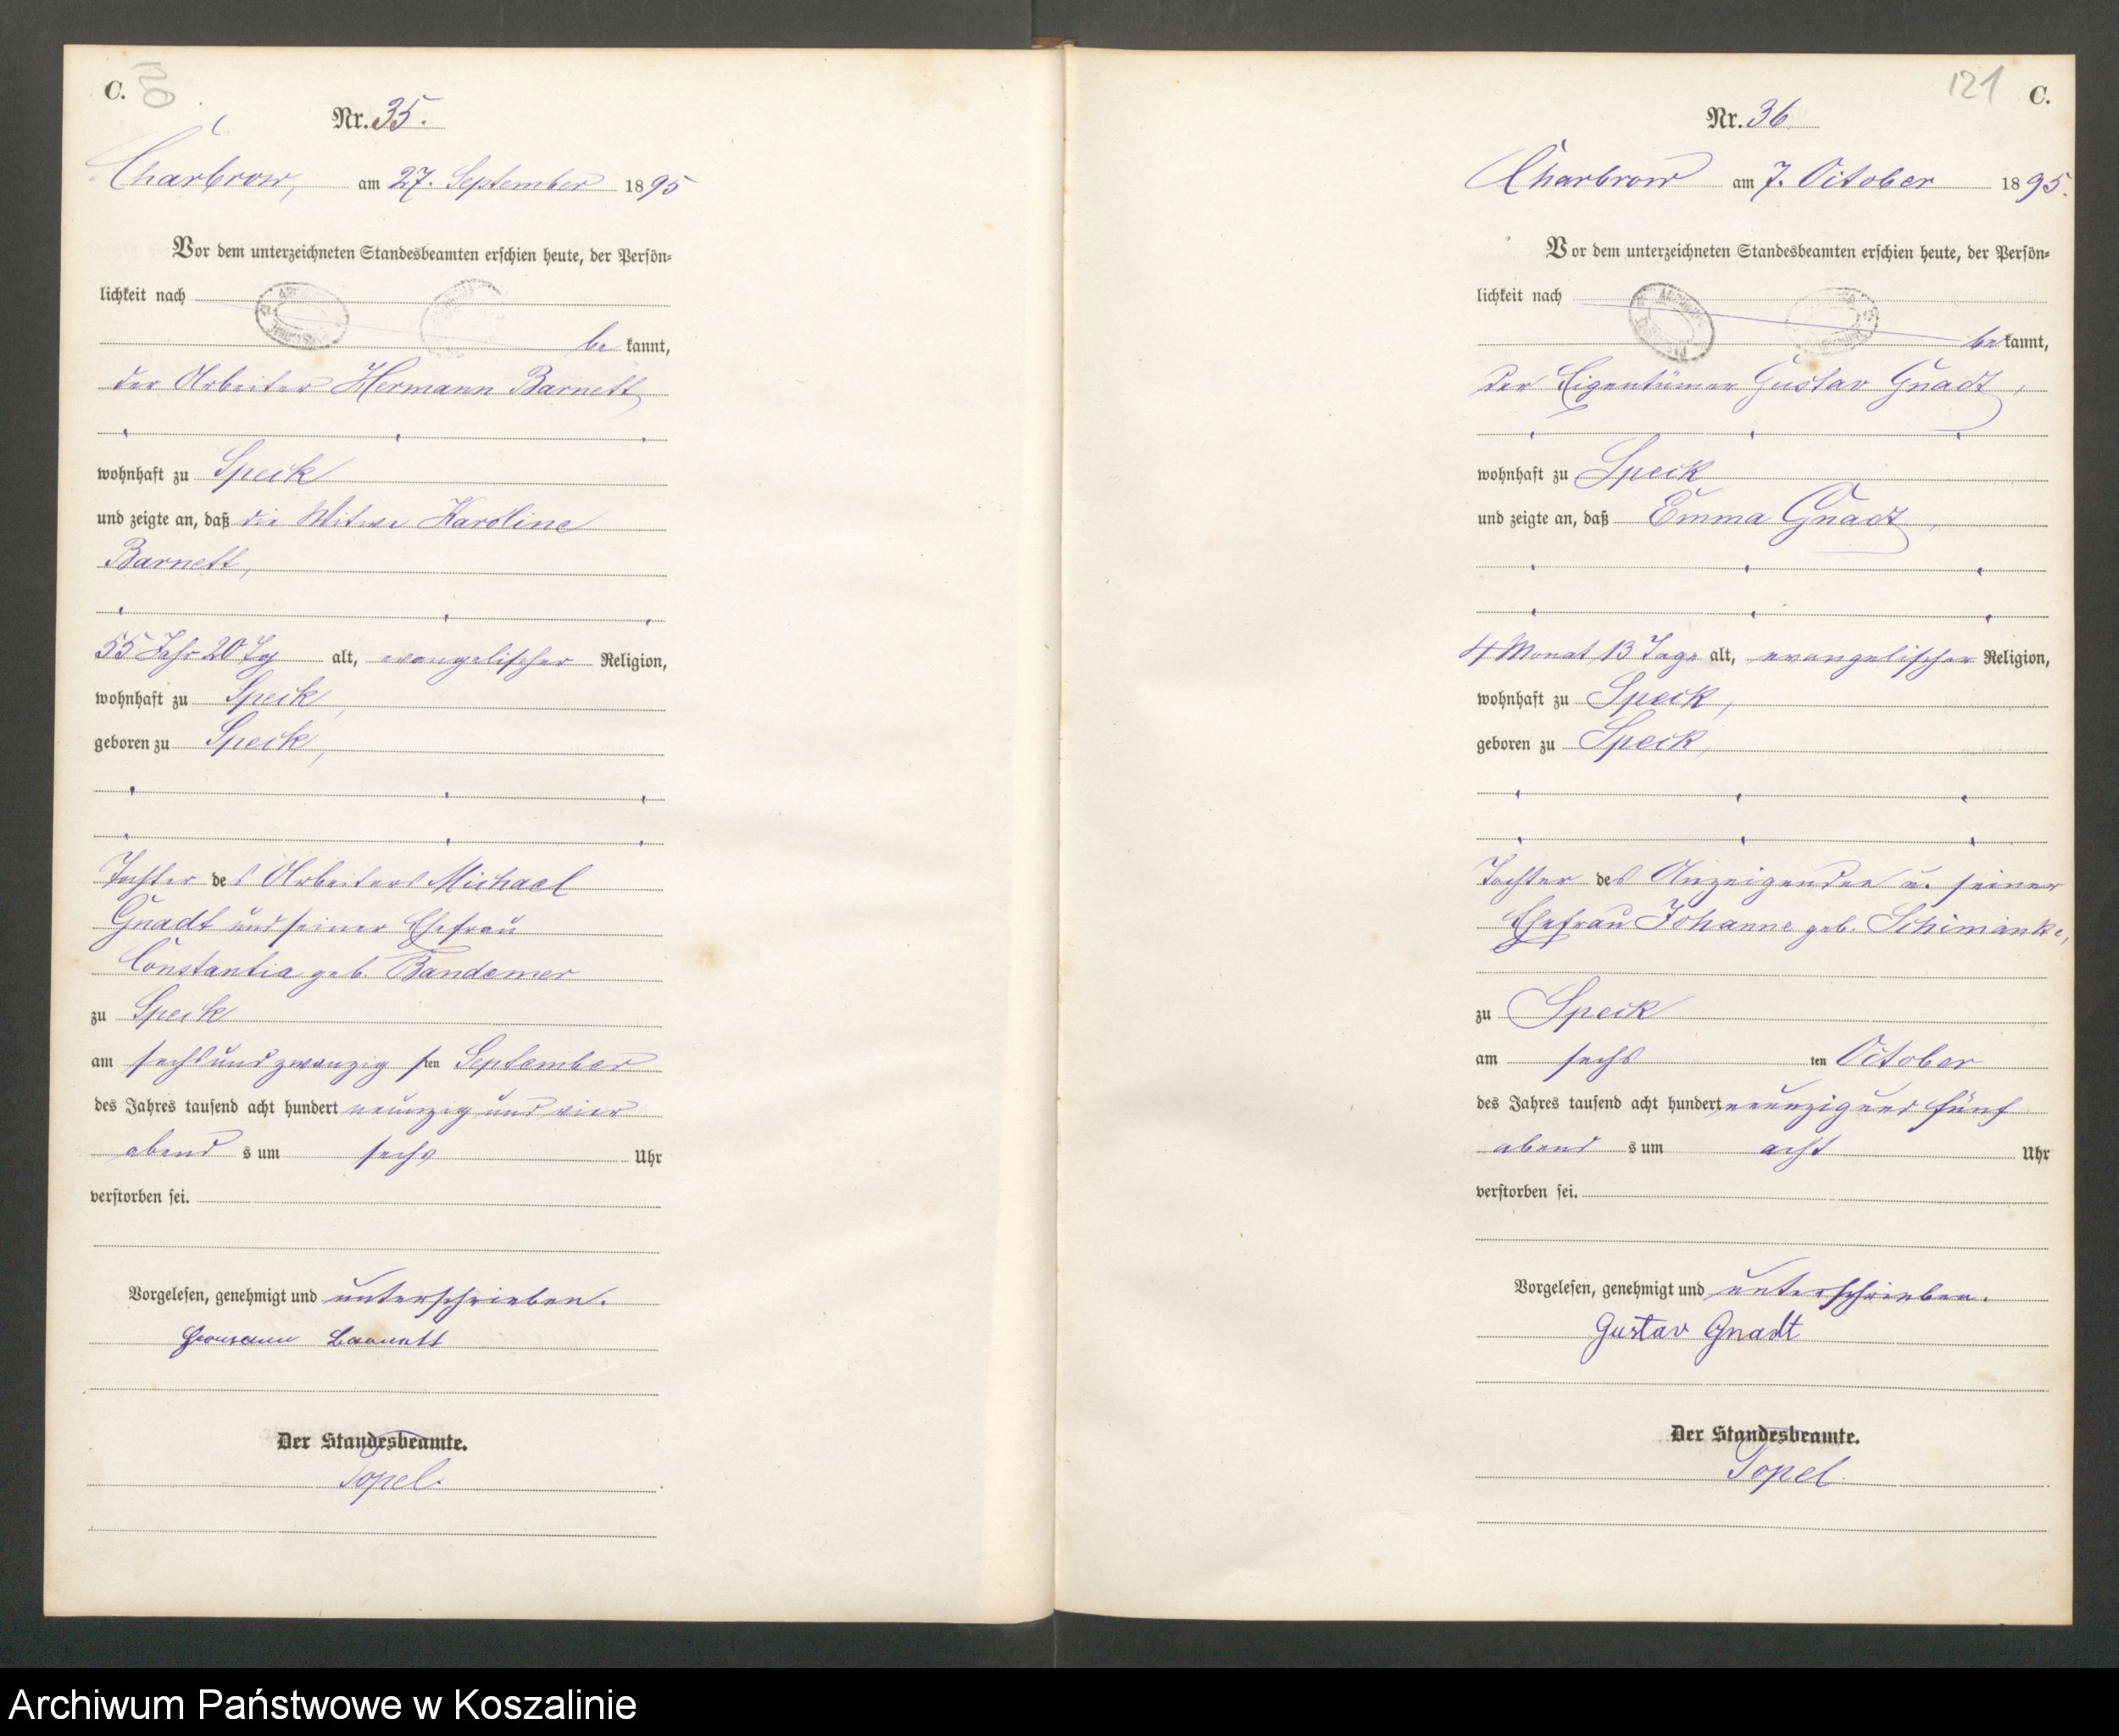 C. 120
Nr. 35.
Charbrow, am 27. September 1895
Vor dem unterzeichneten Standesbeamten erschien heute, der Persön-
lichkeit nach
be kannt,
der Arbeiter Hermann Barnett
wohnhaft zu Speck
und zeigte an, daß die Witwe Karoline
Barnett,
55 Jahr 20 Tg alt, evangelischer Religion,
wohnhaft zu Speck,
geboren zu Speck,
Tochter des Arbeiters Michael
Gnadt und seiner Ehefrau
Constantia geb. Bandemer
zu Speck
am sechsundzwanzig sten September
des Jahres tausend acht hundert neunzig und vier
abend s um sechs Uhr
verstorben sei.
Vorgelesen, genehmigt und unterschrieben.
Hermann Barnett
Der Standesbeamte.
Topel.
121 C.
Nr. 36
Charbrow am 7. October 1895.
Vor dem unterzeichneten Standesbeamten erschien heute, der Persön-
lichkeit nach
be kannt,
der Eigentümer Gustav Gnadt,
wohnhaft zu Speck
und zeigte an, daß Emma Gnadt,
4 Monat 13 Tage alt, evangelischer Religion,
wohnhaft zu Speck,
geboren zu Speck,
Tochter des Anzeigenden u. seiner
Ehefrau Johanne geb. Schimanke,
zu Speck
am sechs ten October
des Jahres tausend acht hundert neunzig und fünf
abend s um acht Uhr
verstorben sei.
Vorgelesen, genehmigt und unterschrieben.
Gustav Gnadt
Der Standesbeamte.
Topel.
Archiwum Państwowe w Koszalinie